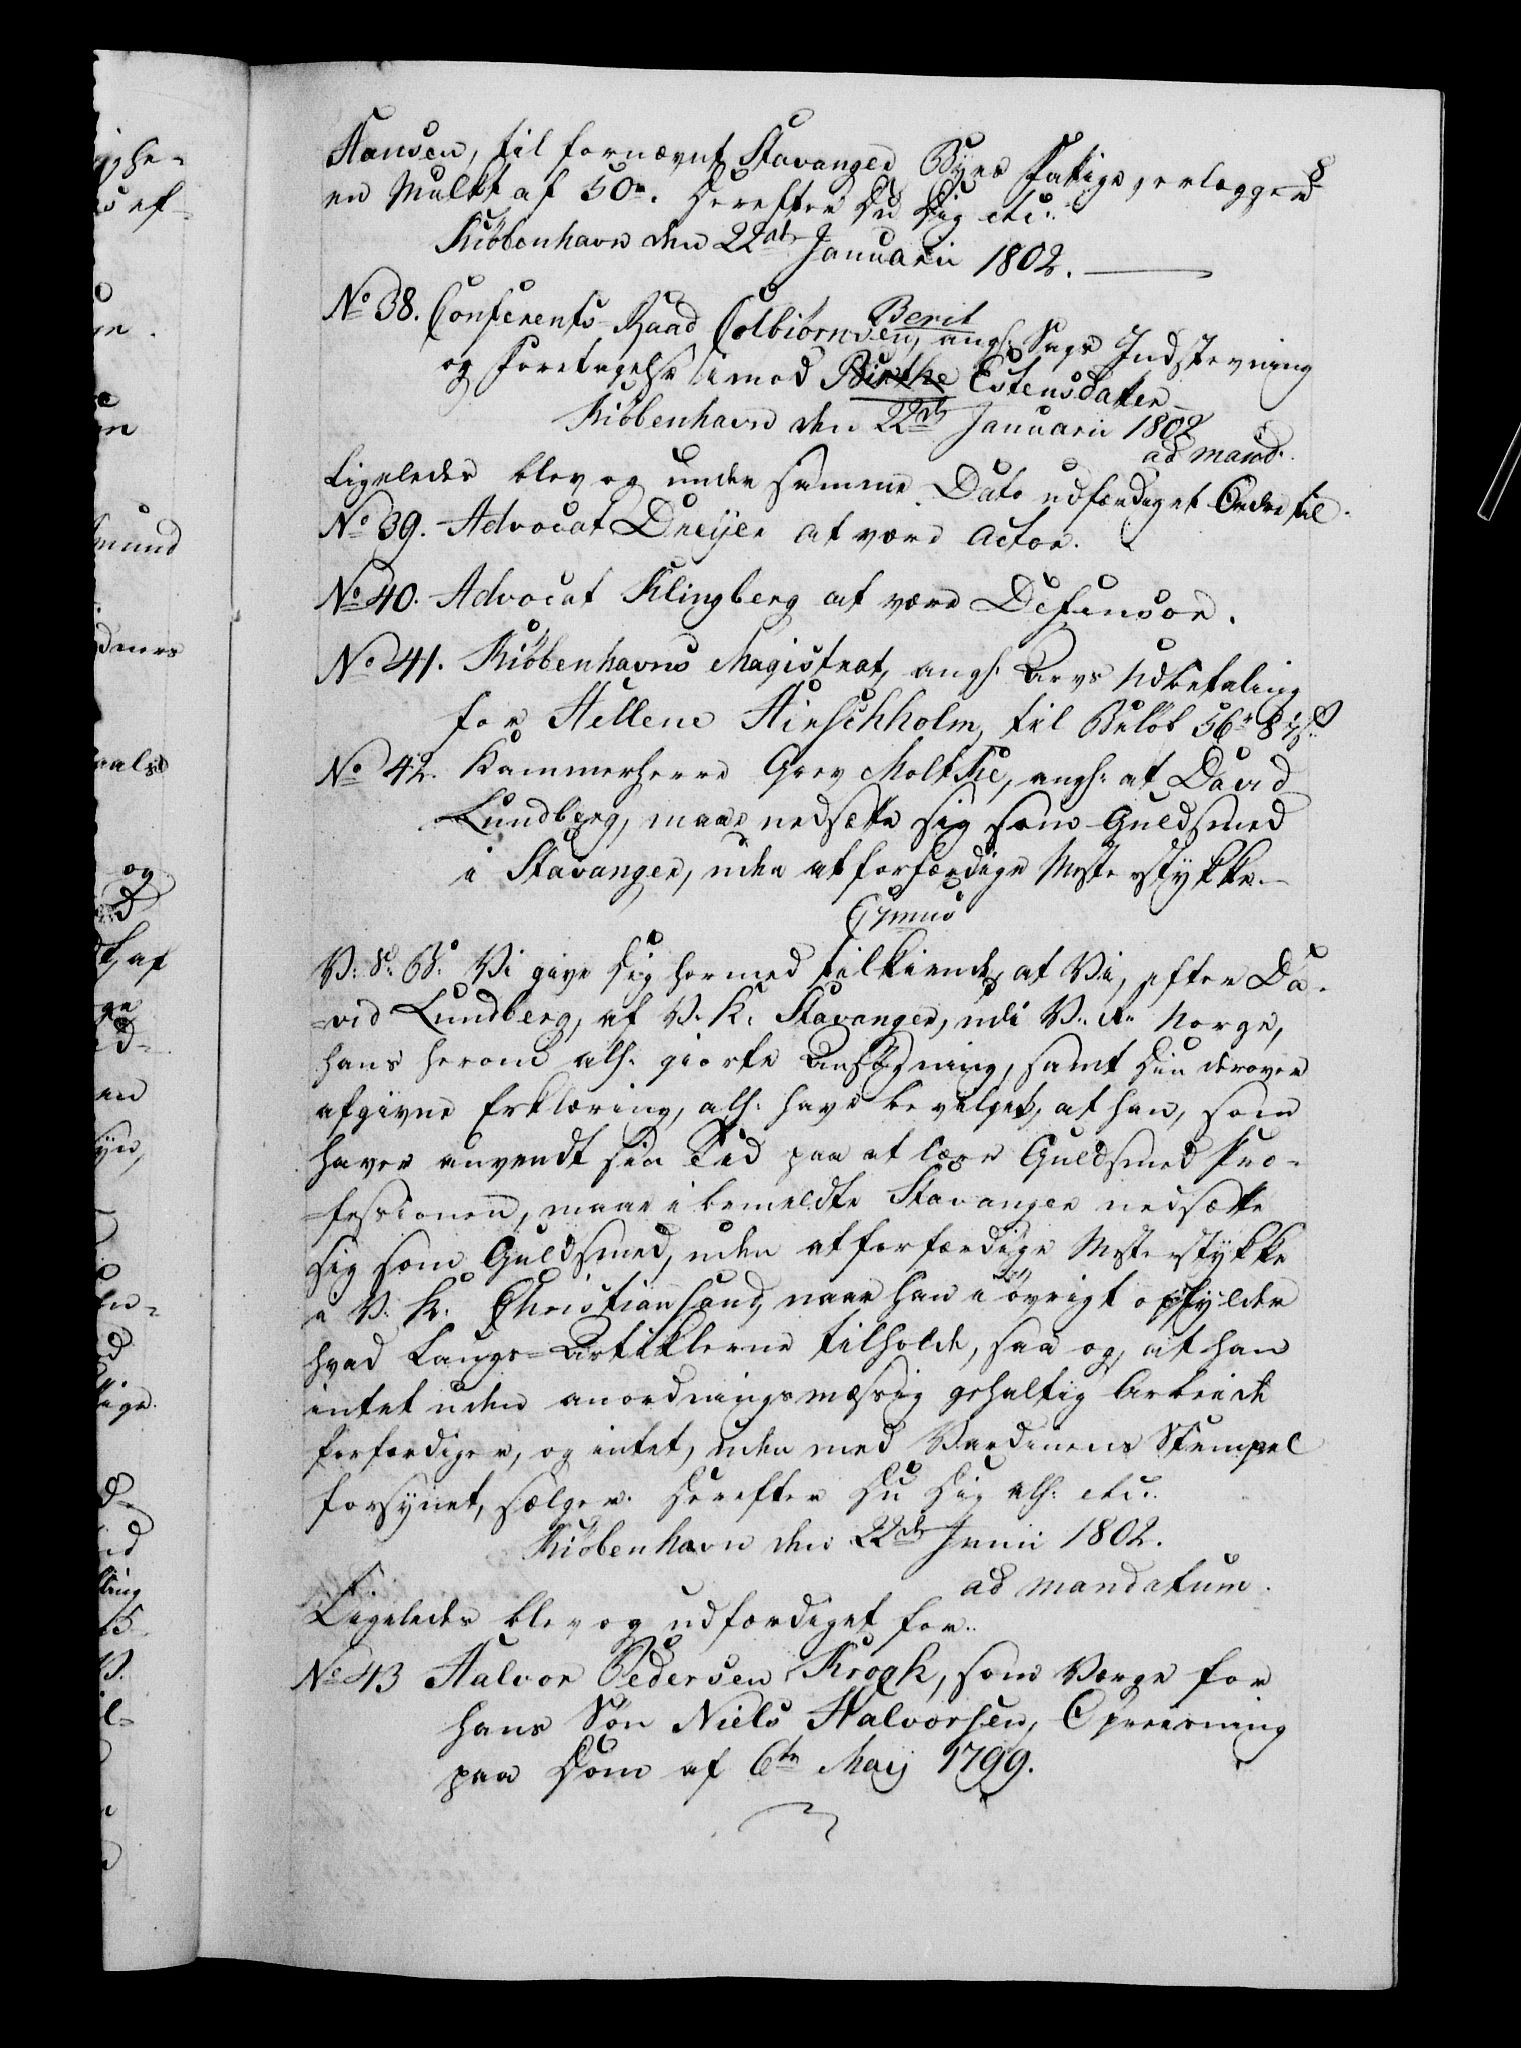 Hansen, til fornævnt Stavanger Byes Fattige, erlægger
en Mulkt af 50 r. Derefter Du Dig etc.
Kiöbenhavn den 22de Januarii 1802.
No 38. Conferents-Raad Colbiörnsen, angl. Sags Indstevning
Berit
og Foretagelse imod Birthe Estensdatter
Kiöbenhavn den 22de Januarii 1802
ad mand.
Ligeledes blev og under samme Dato udfærdiget Ordre til
No 39. Advocat Dreijer at være Actor.
No 40. Advocat Klingberg at være Defensor.
No 41. Kiöbenhavns Magistrat, angl. Arvs Udbetaling
for Hellene Hirschholm, til Belöb 56 r 8 s.
No 42. Kammerherre Grev Moltke, angl. at David
Lundberg, maae nedsætte sig som Guldsmed
i Stavanger, uden at forfærdige Mesterstykke.
V. S. B. Vi give Dig hermed tilkiende, at Vi, efter Da-
-vid Lundberg, af V. K. Stavanger, udi V. R. Norge,
hans herom all. giorte Ansögning, samt Din derover
afgivne Erklæring, all. have bevilget, at han, som
haver anvendt sin Tid paa at lære Guldsmed Pro-
-fessionen, maae i bemeldte Stavanger nedsætte
sig som Guldsmed, uden at forfærdige Mesterstykke
i V. K. Christiansand, naar han i övrigt opfylder
hvad Laugs-Artiklerne tilholde, saa og, at han
intet uden anordningsmæssig gehaltig Arbeide
forfærdiger, og intet, uden med Vardinens Stempel
forsynet, sælger. Derefter Du Dig all. etc.
Kiöbenhavn den 22de Janii 1802.
ad mandatum.
Ligeledes blev og udfærdiget for
No 43 Halvor Pedersen Krogh, som Værge for
hans Sön Niels Halvorsen, Opreisning
paa Dom af 6te Maij 1799.